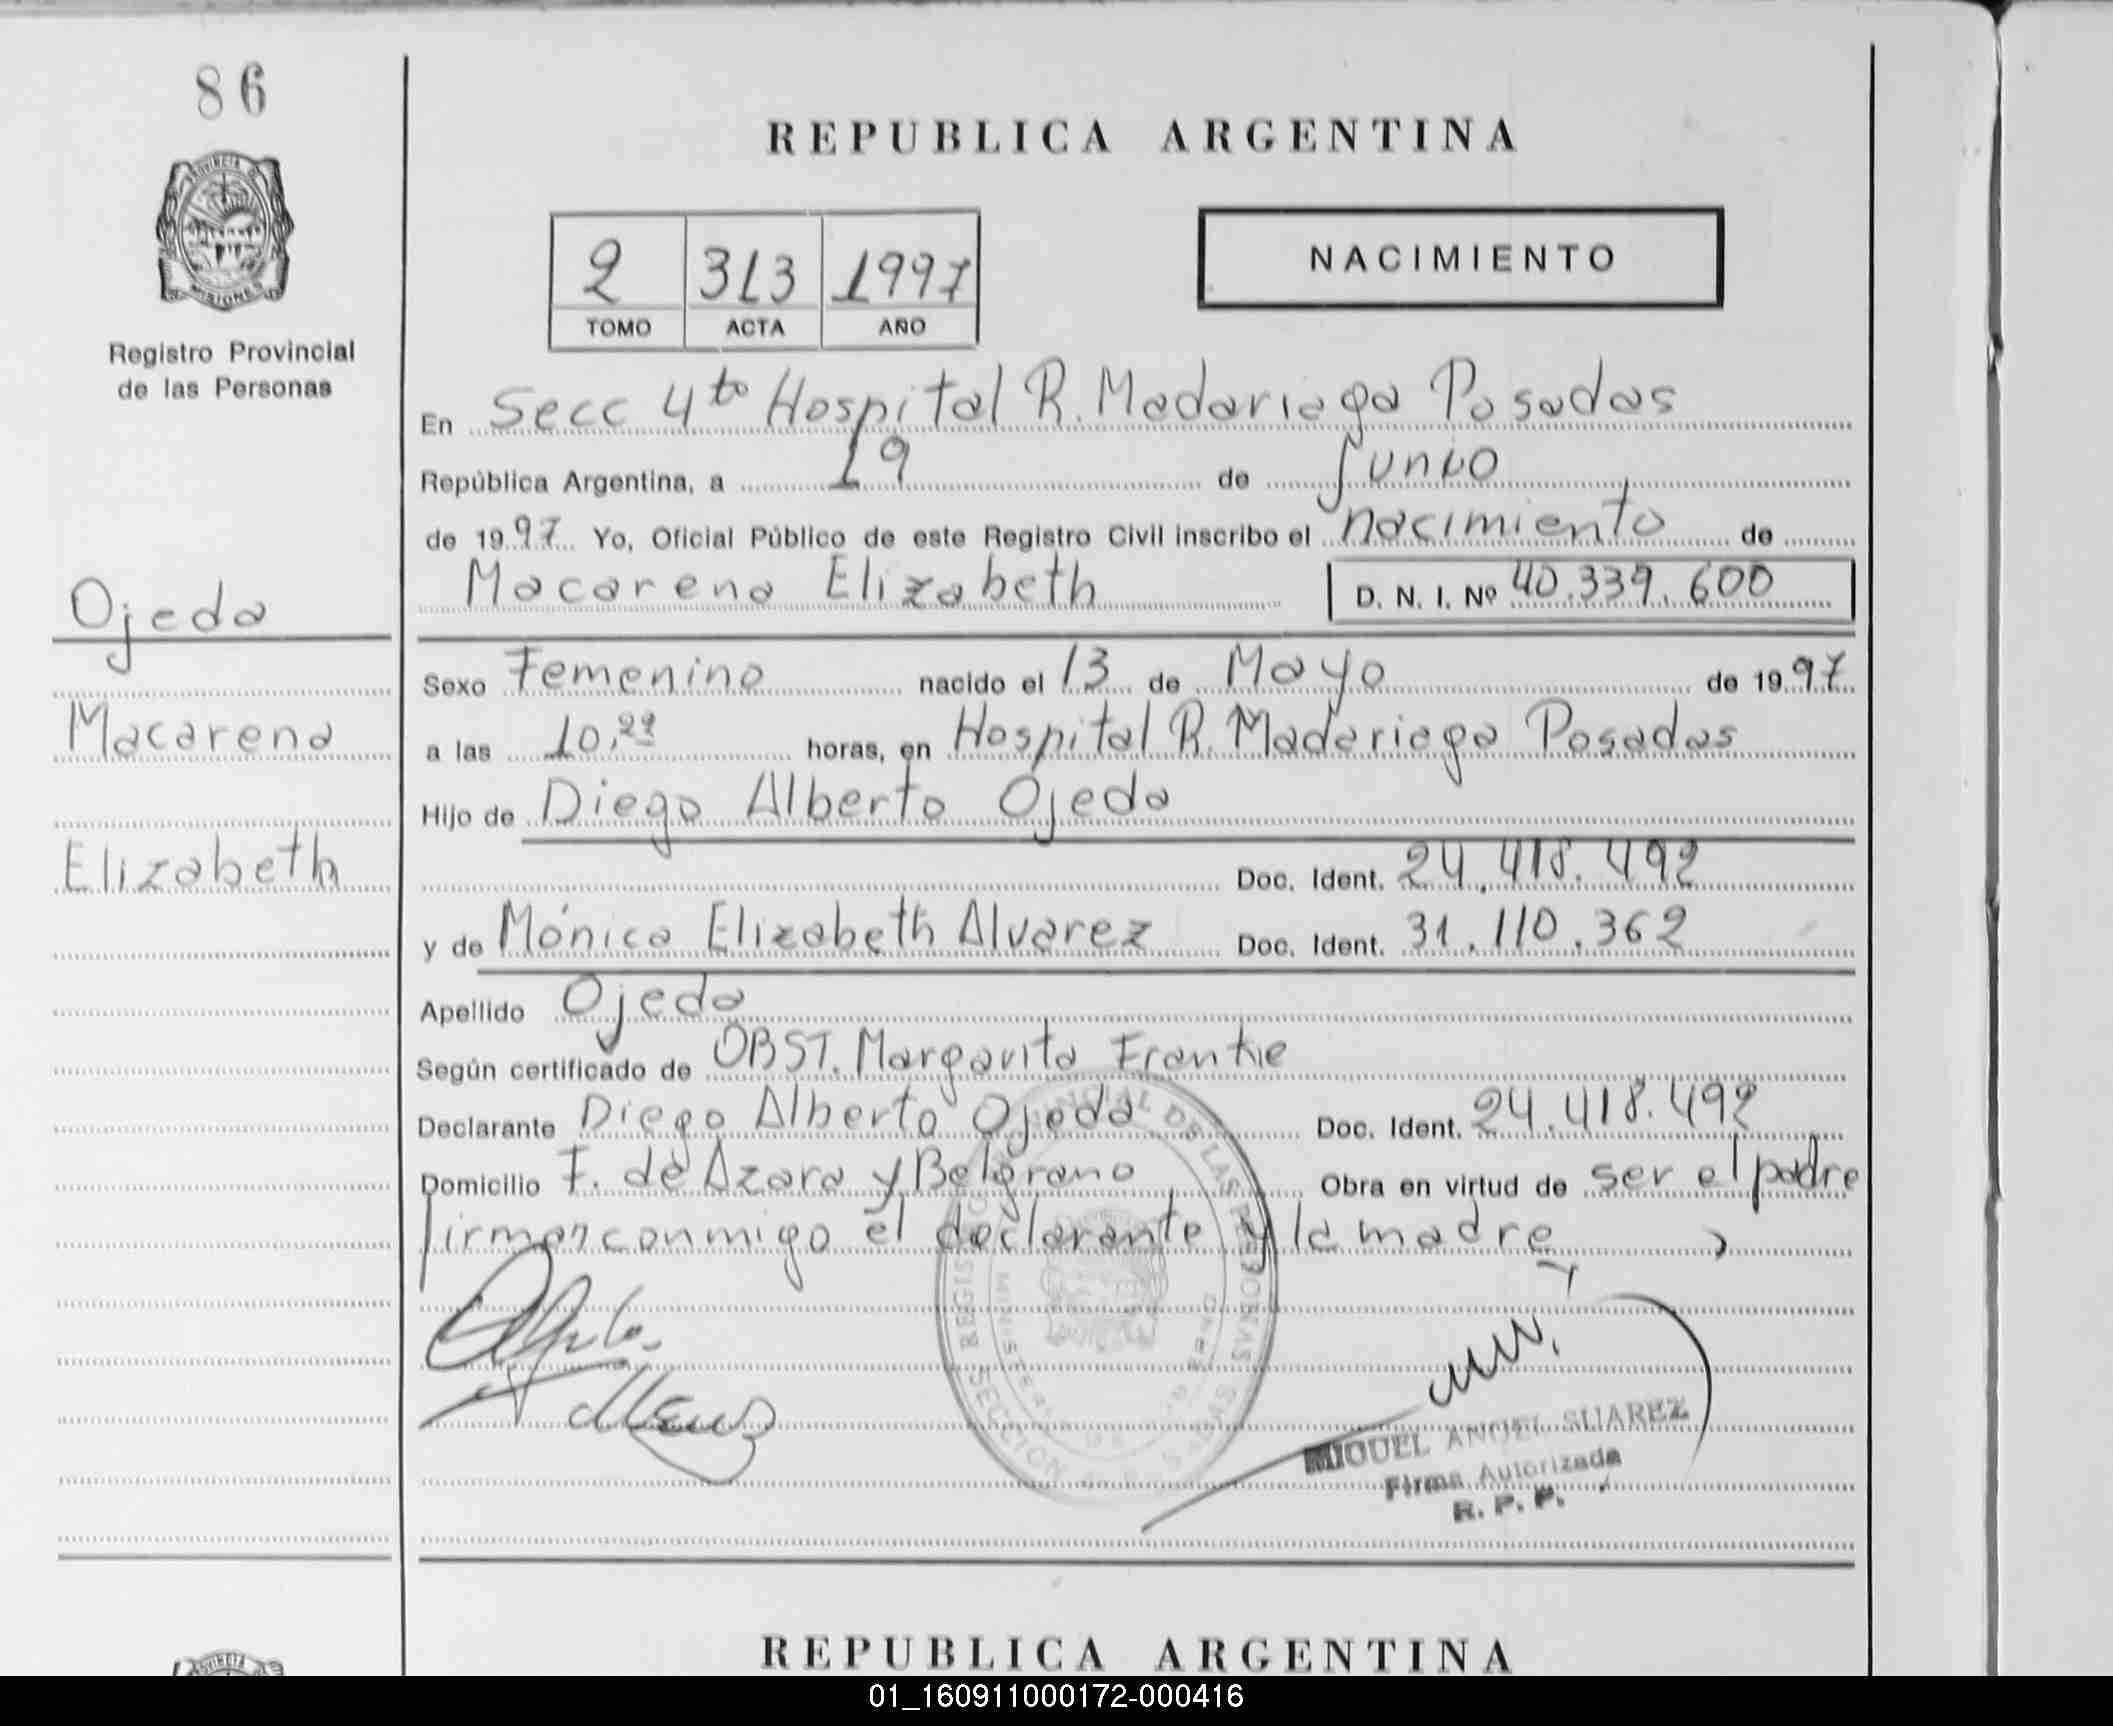 86
REPUBLICA ARGENTINA
PROVINCIA DE
MISIONES
Registro Provincial
de las Personas
2 313 1997
TOMO ACTA AÑO
NACIMIENTO
En Secc 4to Hospital R. Madariaga Posadas
República Argentina, a 19 de Junio
de 1997 Yo, Oficial Público de este Registro Civil inscribo el nacimiento de
Macarena Elizabeth D. N. I. Nº 40.339.600
Ojeda
Macarena
Elizabeth
Sexo Femenino nacido el 13 de Mayo de 1997
a las 10,29 horas, en Hospital R. Madariaga Posadas
Hijo de Diego Alberto Ojeda
Doc. Ident. 24.418.492
y de Mónica Elizabeth Alvarez Doc. Ident. 31.110.362
Apellido Ojeda
Según certificado de OBST. Margarita
Declarante Diego Alberto Ojeda Doc. Ident. 24.418.492
Domicilio F. de Azara y Belgrano Obra en virtud de ser el padre
firman conmigo el declarante y la madre
MIGUEL ANGEL SUAREZ
Firma Autorizada
R. P. P.
REPUBLICA ARGENTINA
01_160911000172-000416